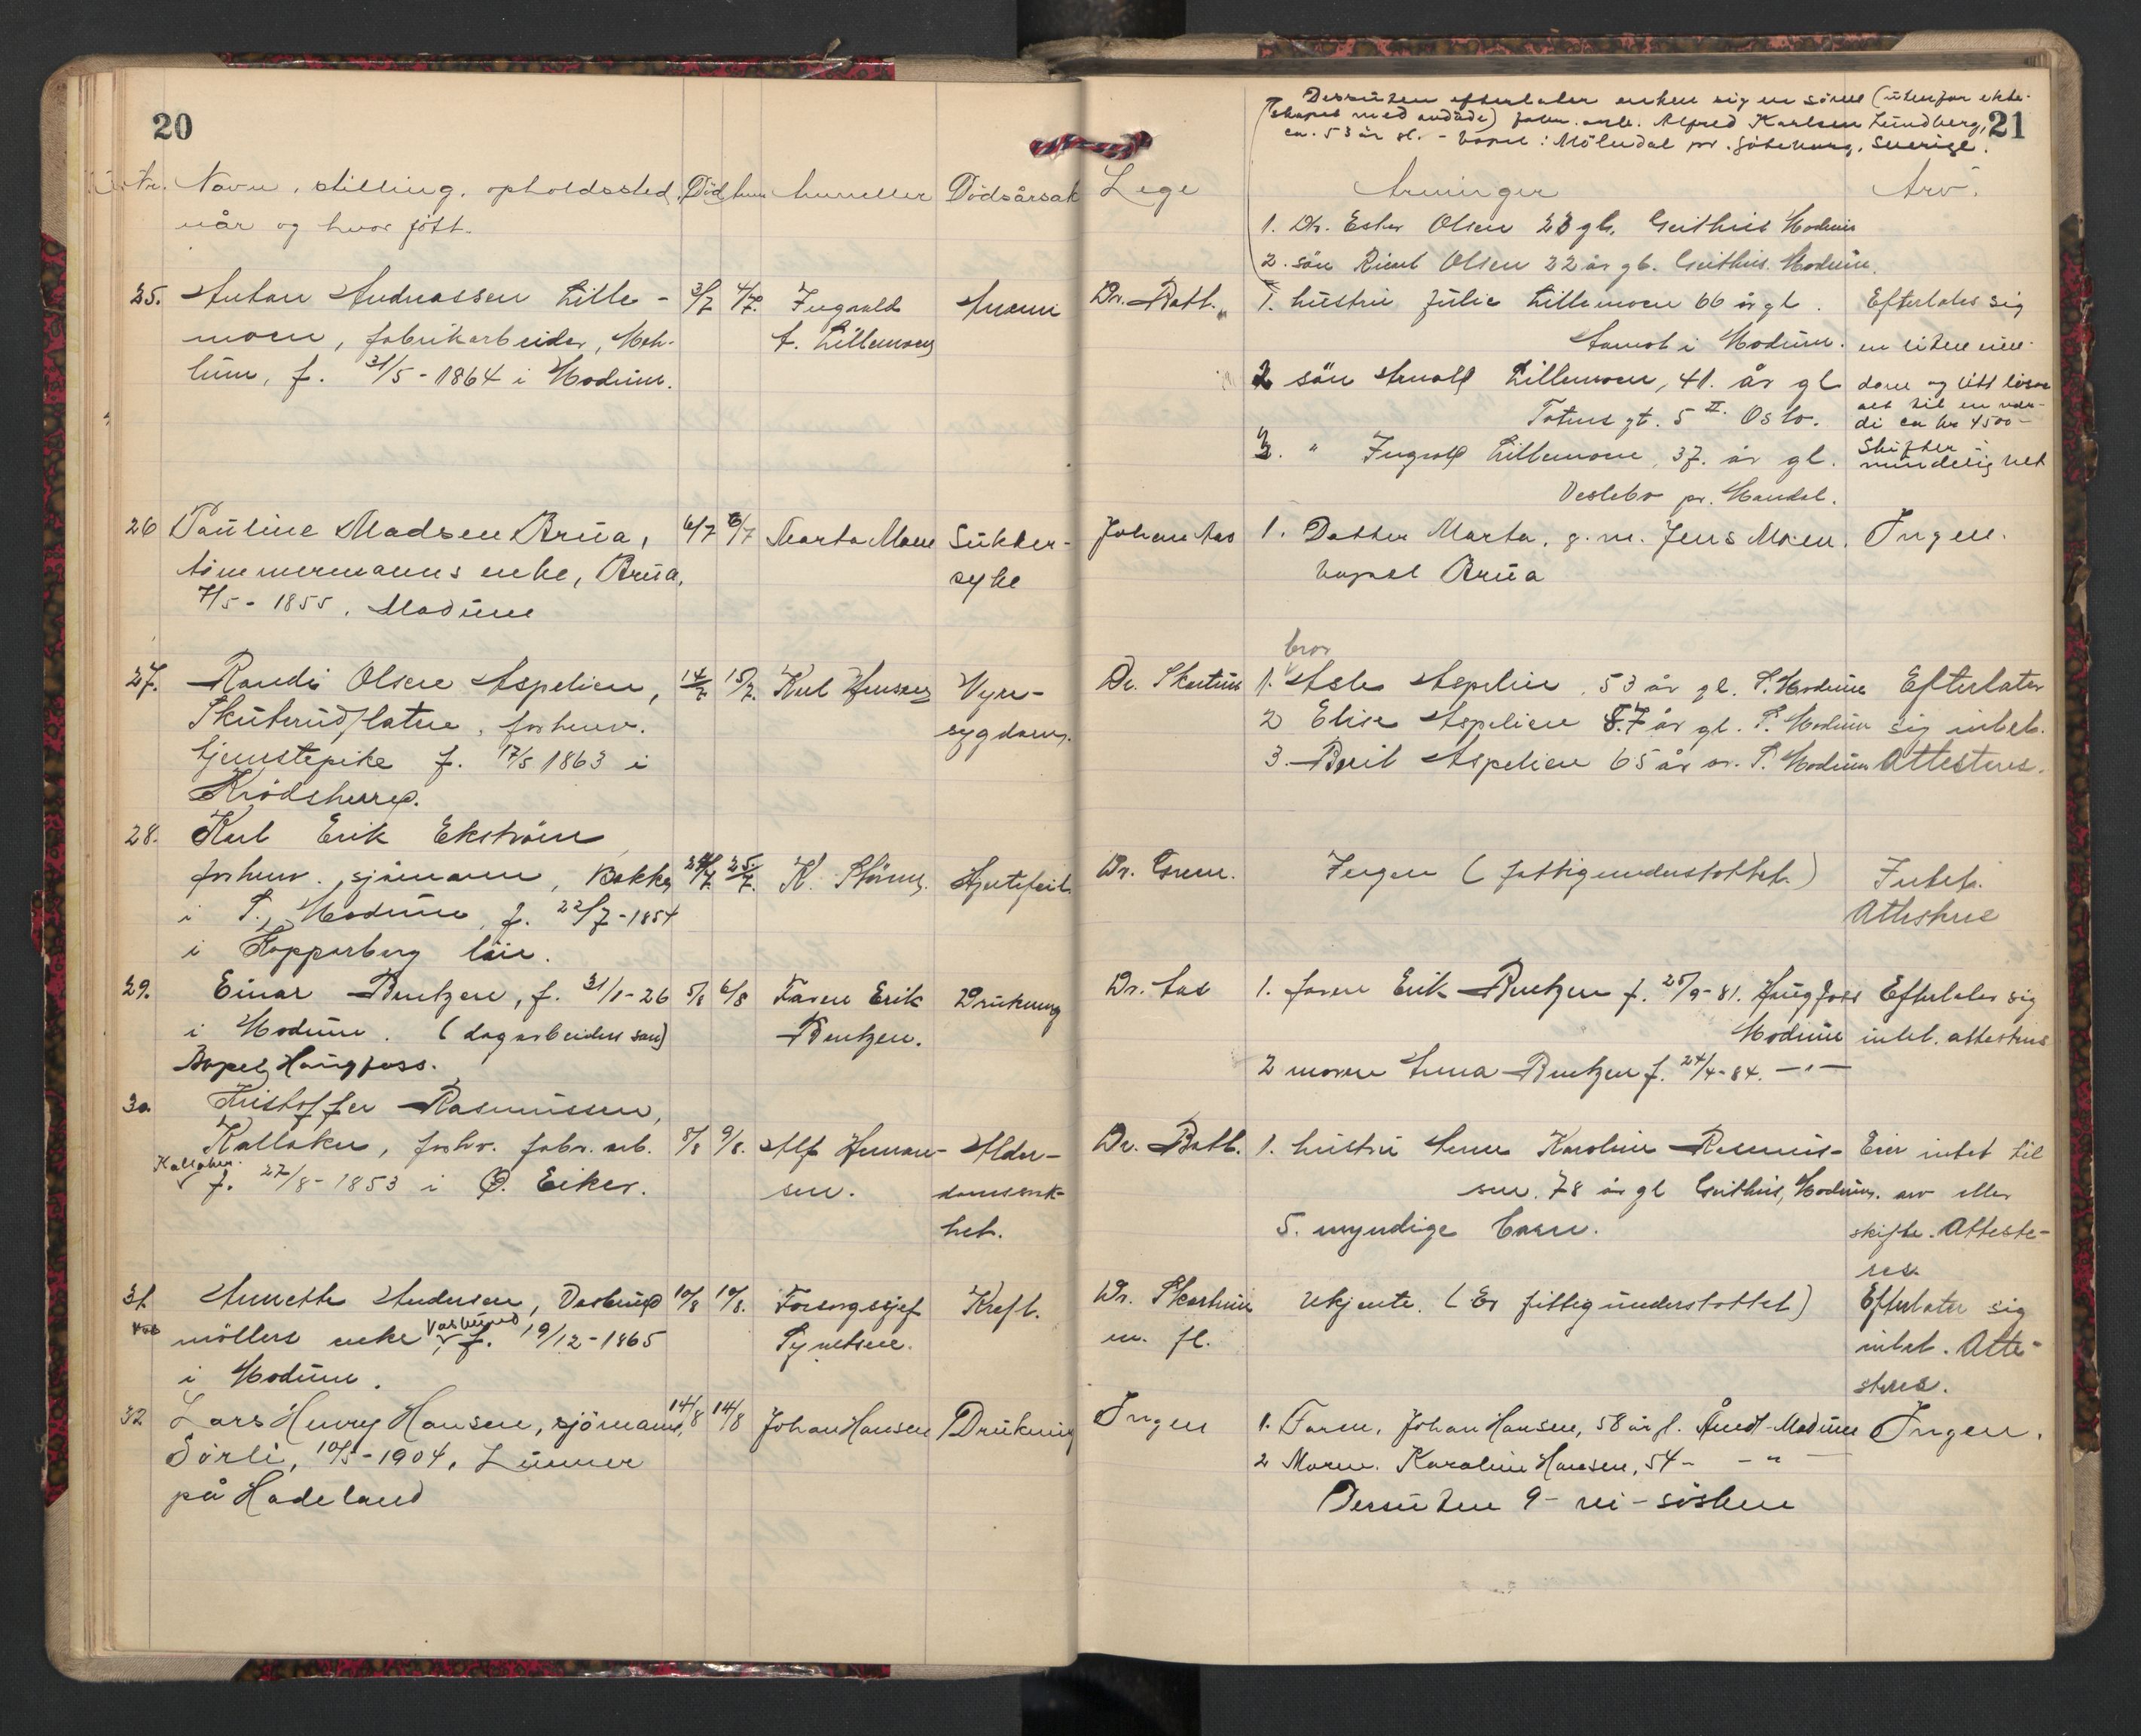 20
Nr. Navn, stilling, opholdssted, Död
når og hvor fött.
Anmelder Dödsårsak
25. Anton Andreassen Lille-
moen, fabrikarbeider,
f. 31/5-1864 i Modum.
3/7 4/7. Ingvald
A. Lillemoen
Anemi
26 Pauline Madsen Brua,
timmermanns enke, Brua,
7/5-1855. Modum
6/7 6/7 Marta Moen Sukker-
syke
27. Randi Olsen Aspelien,
Skuterudflaten, forhenv.
tjenstepike f. 17/5 1863 i
Krödsherred.
14/7 15/7. Karl Hansen Nyre-
sygdom.
28. Karl Erik Ekström
forhenv. sjömann, Bakke
i S. Modum f. 22/7-1854
i Kopparberg län.
24/7 25/7. K. Hjertefeil.
29. Einar Bentzen, f. 31/1-26
i Modum. (dagarbeiders sön)
Bopel Haugfoss.
5/8 6/8 Faren Erik
Bentzen.
Drukning
30 Kristoffer Rasmussen,
Kalloken, forhv. fabr. arb.
Kalloken.
f. 27/8-1853 i Ö. Eiker.
8/8 9/8. Alf Herman-
sen.
Alder-
domsvak-
het.
31 Annette Andersen,
möllers enke f. 19/12-1865
i Modum.
10/8 10/8. Forsorgssjef
Kreft.
32 Lars Henry Hansen, sjömann,
Sörli, 10/5-1904, Lunner
på Hadeland
14/8 14/8 Johan Hansen Drukning
21
Dessuten efterlater enken sig en sönn (utenfor ekte-
skapet med avdöde) fabr. arb. Alfred Karlsen Lundberg,
ca. 53 år gl. - bopel: Mölndal pr. Göteborg, Sverige.
Lege Arvinger Arv.
1. Dtr. Ester Olsen 23 gl. Geithus Modum
2. sön Olsen 22 år gl. Geithus. Modum.
Dr. Bath. 1. hustru Julie Lillemoen 66 år gl.
Åmot i Modum.
2 sön Arnolf Lillemoen, 41. år gl
Totens gt. 5 II. Oslo.
3. " Ingvald Lillemoen, 37. år gl.
pr. Mandal.
Efterlater sig
en liten eien-
dom og litt lösöre
alt til en ver-
di ca kr 4500-
Skifter
mindelig helt
Johan Aas 1. Datter Marta, g. m. Jens Moen.
bopel Brua
Ingen.
bror
Dr. Skartum 1. Asle Aspelien. 53 år gl. S. Modum
2 Elise Aspelien 57 år gl. S. Modum
3. Berit Aspelien 65 år " S. Modum
Efterlater
sig intet.
Attesteres.
Dr. Gram. Ingen (fattigunderstöttet.) Intet.
Attesteres
Dr. Aas 1. faren Erik Bentzen f. 25/9-81. Haugfoss
Modum
2 moren Anna Bentzen f. 24/4-84. -"-
Efterlater sig
intet. attesteres
Dr. Bath. 1. hustru Karoline Rasmus-
sen. 78 år gl Geithus, Modum.
5. myndige barn.
Eier intet til
arv eller
skifte. Atteste-
res
Dr. Skartum
m. fl.
Ukjente. (Er fattigunderstöttet)
Efterlater sig
intet. Atte-
steres.
Ingen 1. Faren, Johan Hansen, 58 år g. Åmot-Modum
2 Moren. Karoline Hansen, 54- - " -
Dessuten 9-ni-sösken
Ingen.